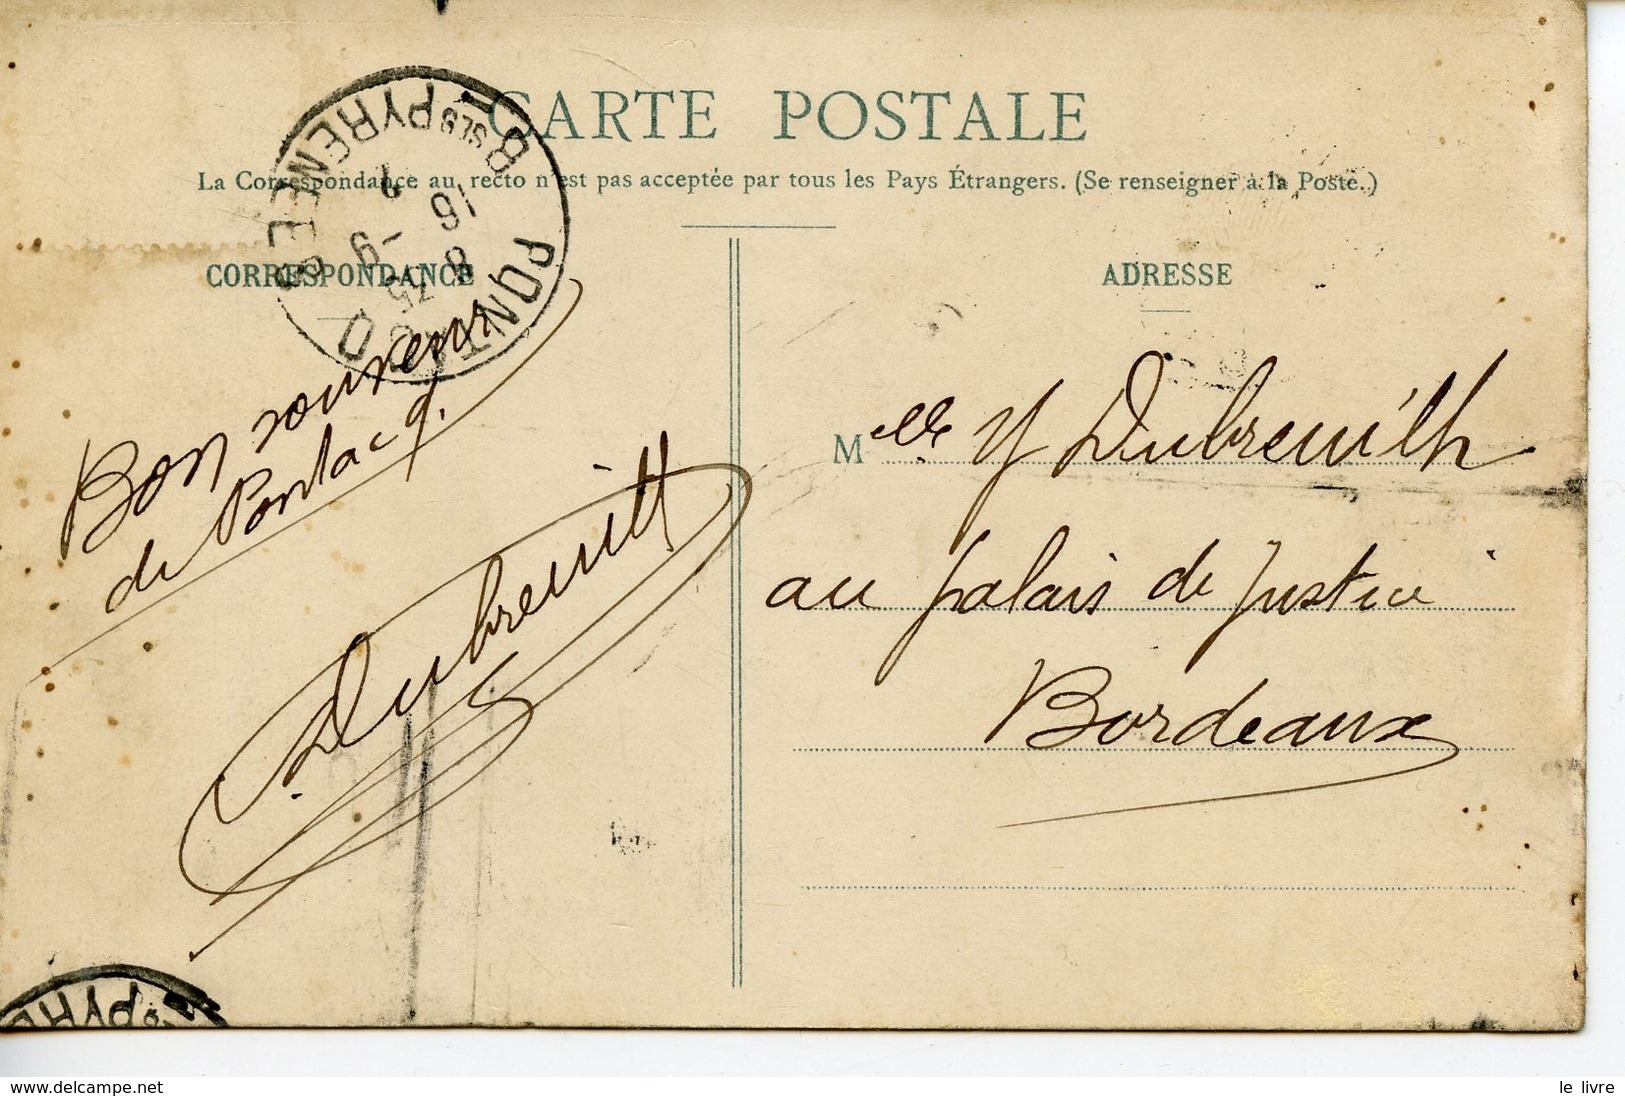 CARTE POSTALE
La Correspondance au recto n'est pas acceptée par tous les Pays Étrangers. (Se renseigner à la Poste.)
CORRESPONDANCE
ADRESSE
PONTACQ
BSES PYRENEES
16
Bon souvenir
de Pontacq.
Dubreuilh
Melle Y Dubreuilh
au palais de Justice
Bordeaux
www.delcampe.net
le livre